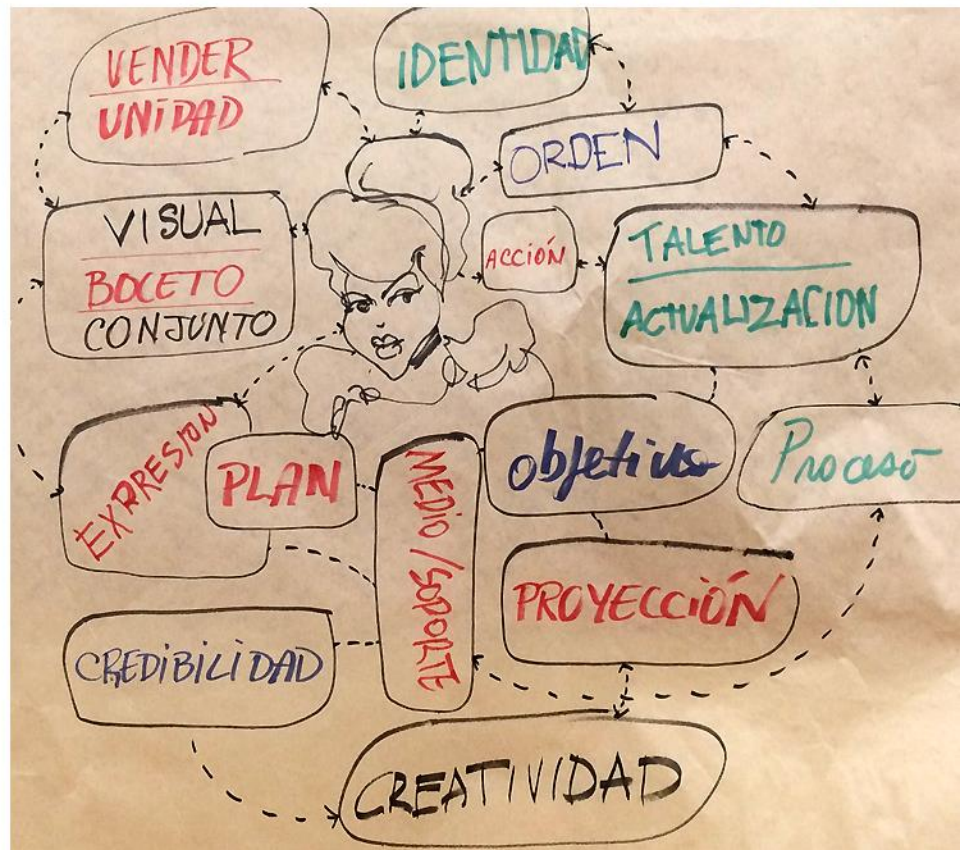 VENDER
UNIDAD
IDENTIDAD
ORDEN
VISUAL
BOCETO
CONJUNTO
ACCIÓN
TALENTO
ACTUALIZACION
EXPRESION
PLAN
MEDIO/SOPORTE
objetivos
Proceso
PROYECCIÓN
CREDIBILIDAD
CREATIVIDAD